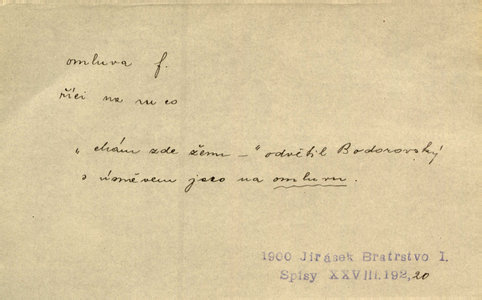 omluva f.
říci na
„ zde ženu –“ odvětil Bodorovský
s úsměvem jako na omluvu.
1900 Jirásek Bratrstvo I.
Spisy XXVIII.192,20